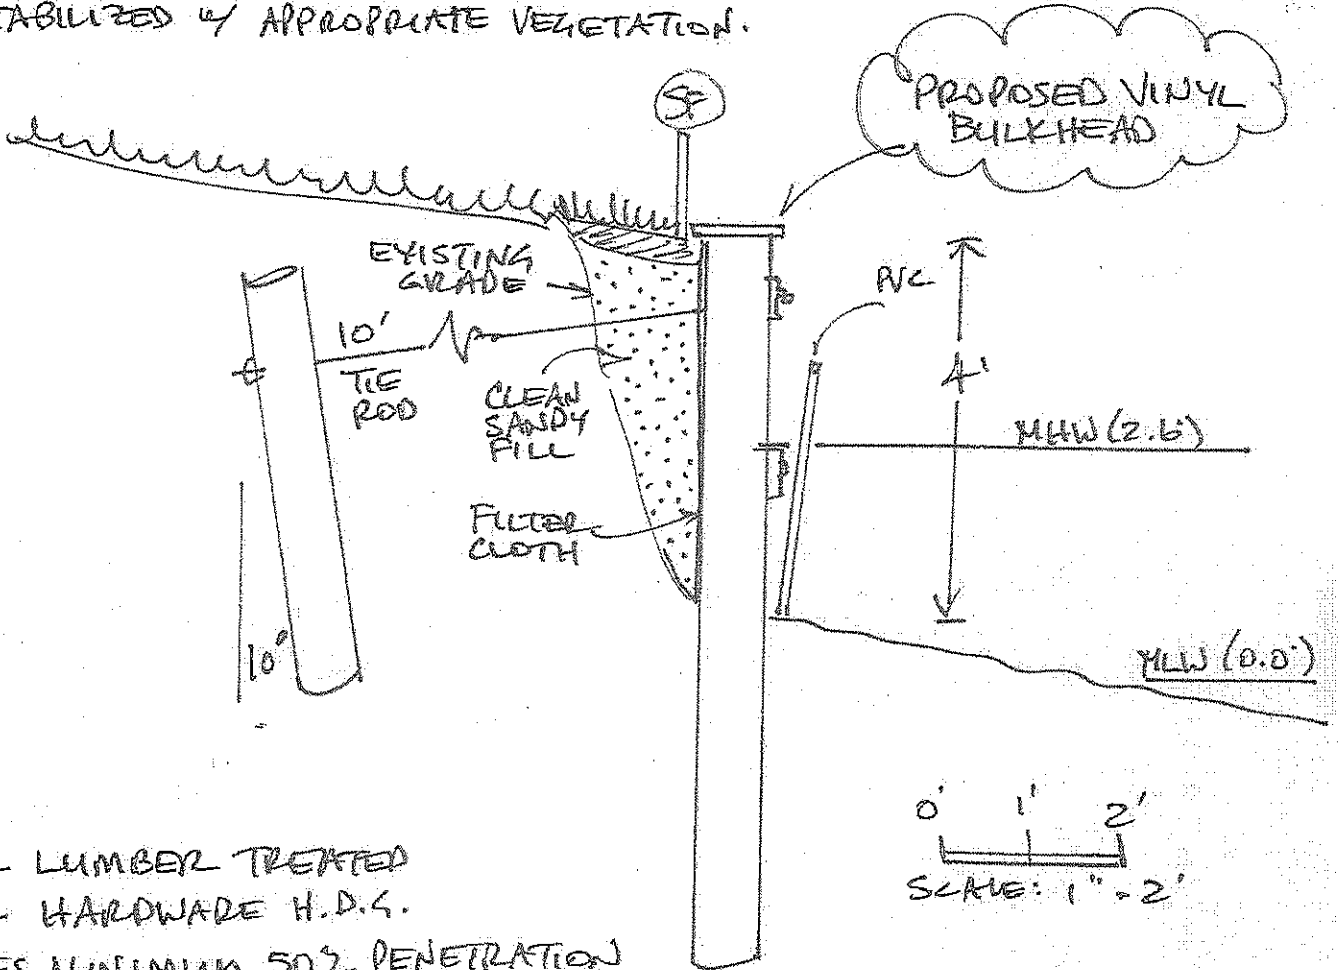 TABILIZED W/ APPROPRIATE VEGETATION.
SF
PROPOSED VINYL
BULKHEAD
EXISTING
GRADE
PVC
10'
TIE
ROD
4'
CLEAN
SANDY
FILL
MHW (2.6')
FILTER
CLOTH
10'
MLW (0.0')
0' 1' 2'
SCALE: 1" = 2'
L LUMBER TREATED
L HARDWARE H.D.G.
ES MINIMUM 50% PENETRATION